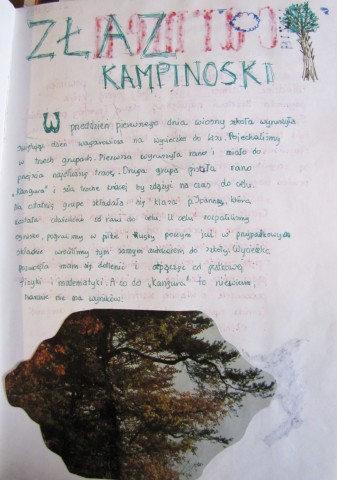 ZŁAZ
KAMPINOSKI
W przeddzień pierwszego dnia wiosny szkoła wyruszyła
dzień wagarowicza na wycieczkę do lasu. Pojechaliśmy
w trzech grupach. Pierwsza wyruszyła rano i miała do
przejścia najdłuższą trasę. Druga grupa pisała rano
"Kangura" i szła trochę krócej by zdążyć na czas do celu.
Na ostatnią grupę składała się klasa p. Joanny, która
została dowieziona od razu do celu. U celu rozpaliliśmy
ognisko, pograliśmy w piłkę i
składzie wróciliśmy tym samym autokarem do szkoły. Wycieczka
pozwoliła nam się dotlenić i odpocząć od
fizyki i matematyki. A co do "Kangura" to niestety,
nie ma wyników.